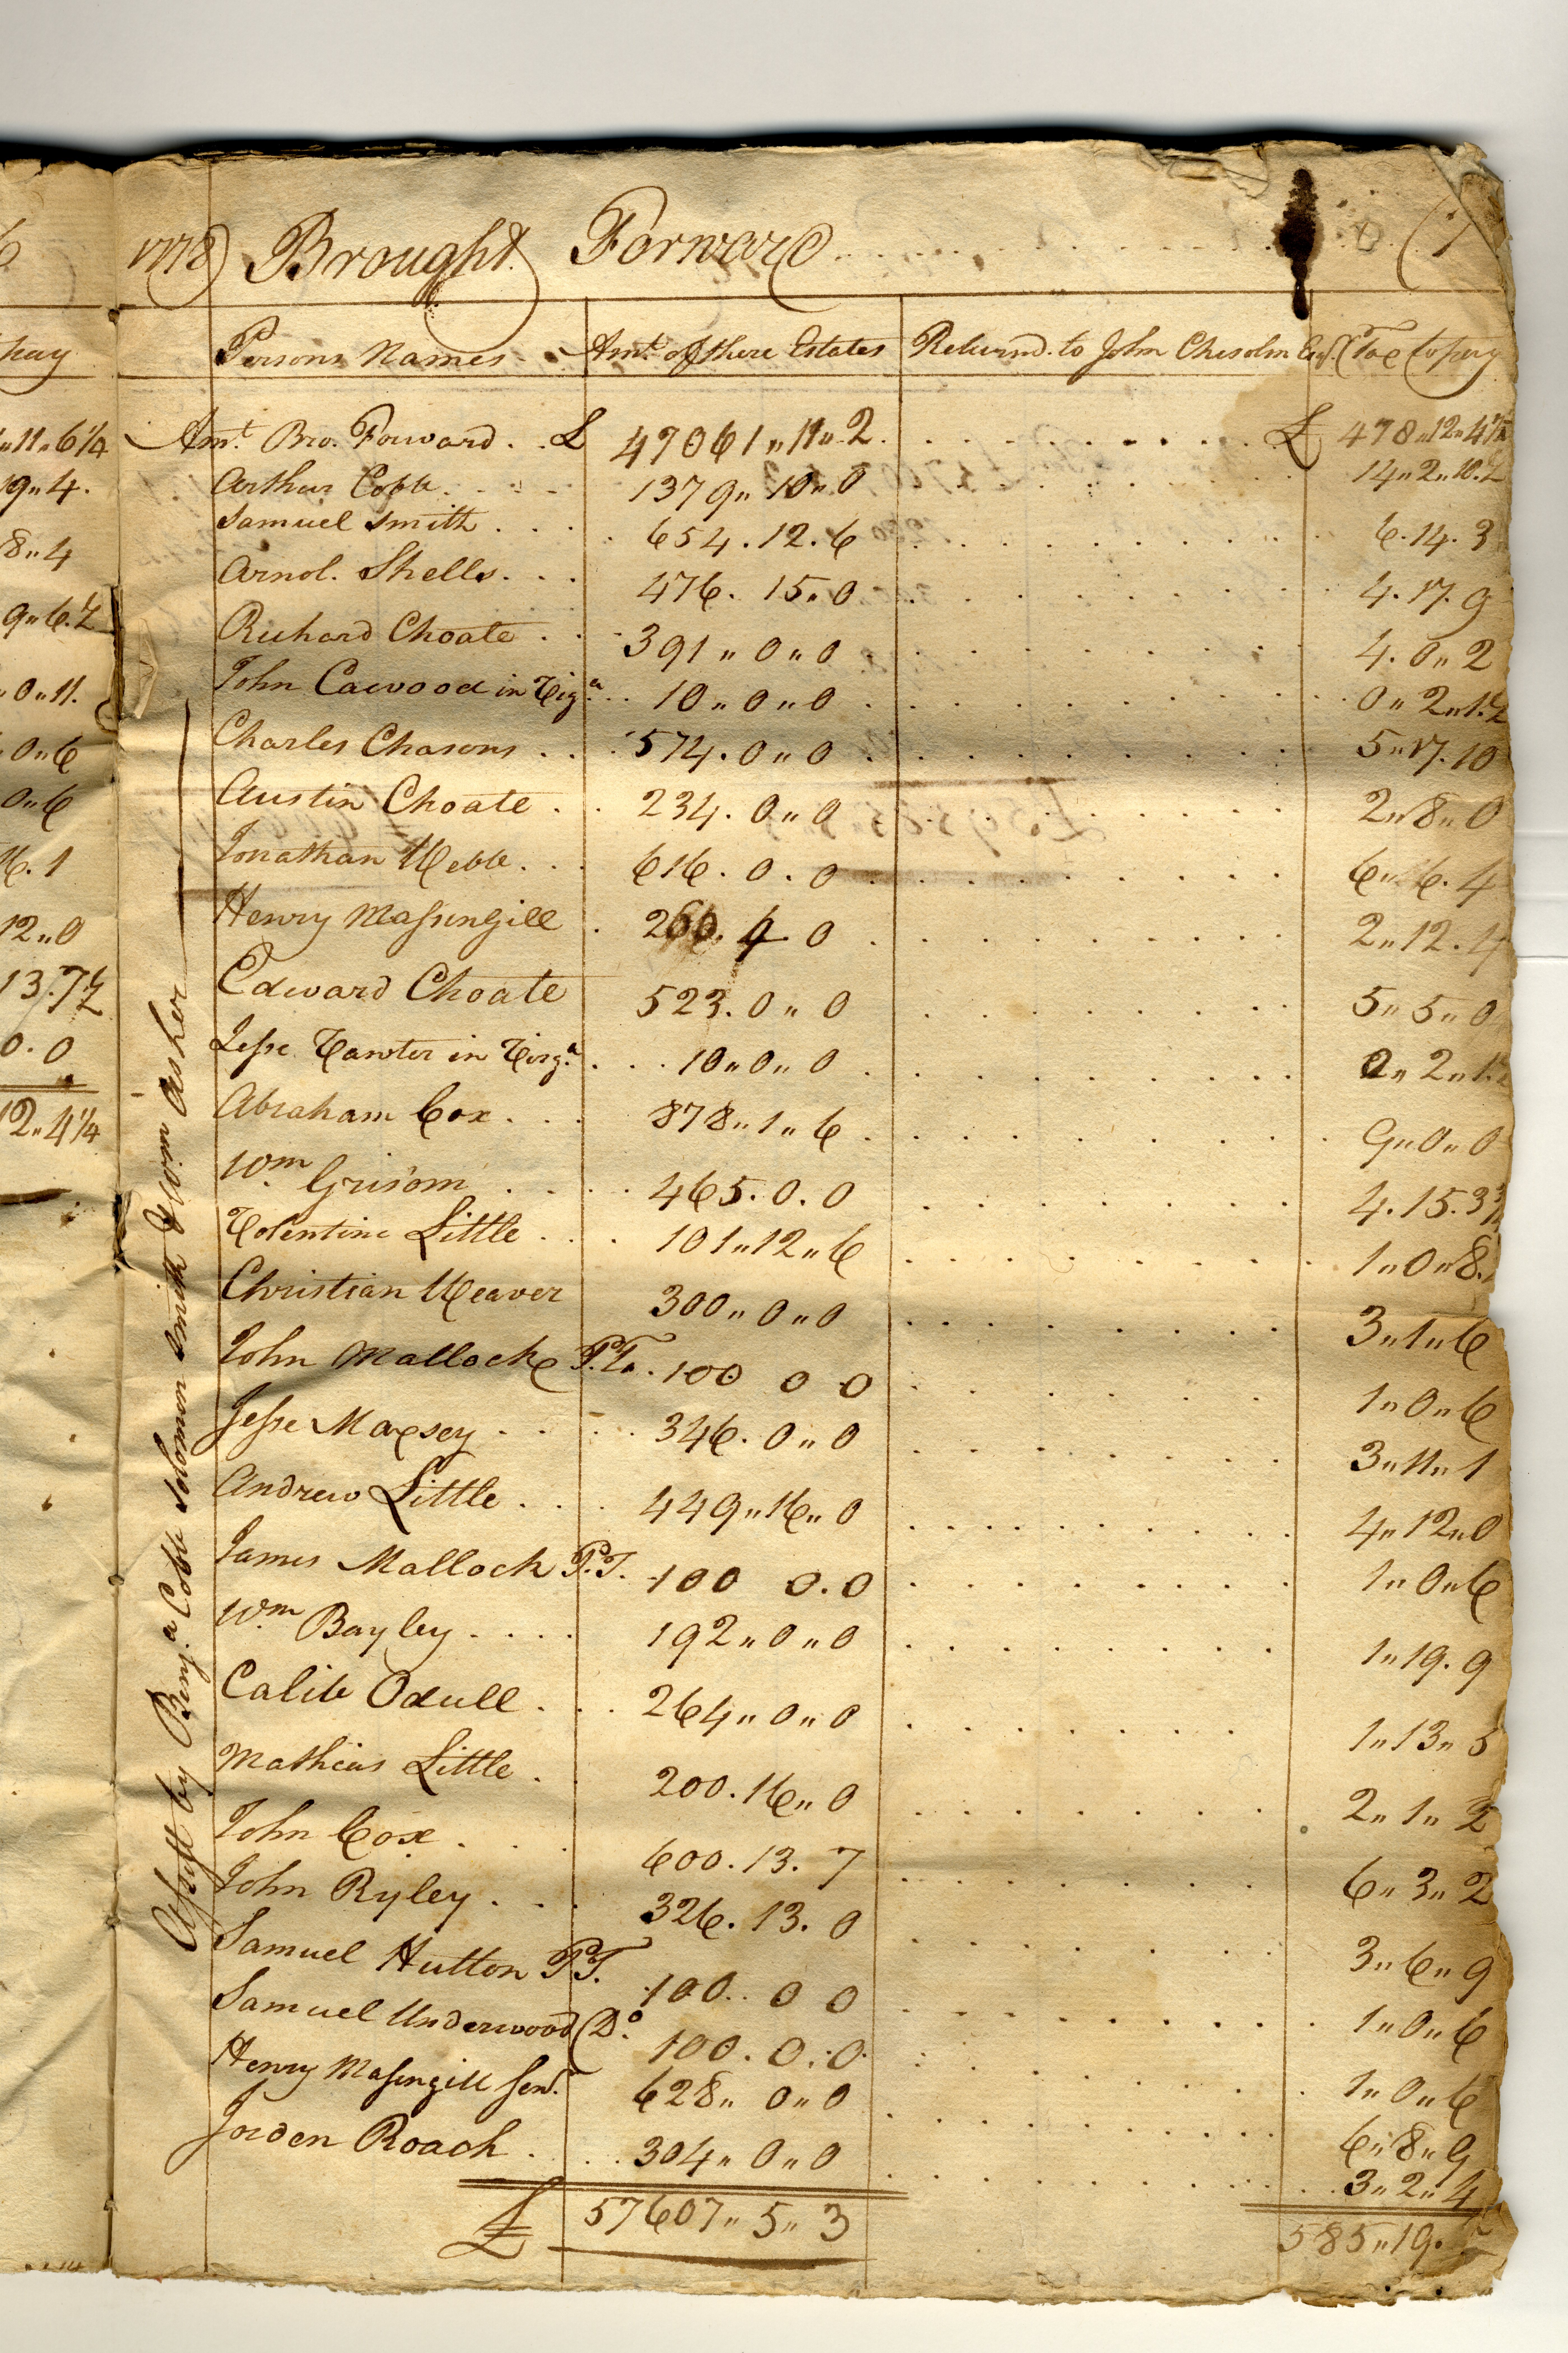 1778) Brought Forward (7
Persons Names Amt. of there Estates Returnd. to John Chisolm Esqr. Tax to pay
Amt. Bro. Forward. . £ 47061 „ 11 „ 2 £ 478 „ 12 „ 4 1/4
Arthur Cobb 1379 „ 10 „ 0 14 „ 2 „ 10.½
Samuel Smith 654 . 12 . 6 6 . 14 . 3
Arnol. Shells 476 . 15 „ 0 4 . 17 . 9
Richard Choate 391 „ 0 „ 0 4 . 0 „ 2
John Cawood in Virga. 10 „ 0 „ 0 0 „ 2 „ 1.½
Charles Chasons 574 . 0 „ 0 5 „ 17 . 10
Austin Choate 234 . 0 „ 0 2 „ 8 „ 0
Jonathan Webb 616 . 0 . 0 6 „ 6 . 4
Henry Massingill 260 . 4 0 2 „ 12 . 4
Edward Choate 523 . 0 „ 0 5 „ 5 „ 0
Jesse Vawter in Virga. 10 „ 0 „ 0 0 „ 2 „ 1.½
Abraham Cox 878 „ 1 „ 6 9 „ 0 „ 0
Wm. Grisom 465 . 0 . 0 4 . 15 . 3¾
Volentine Little 101 „ 12 „ 6 1 „ 0 „ 8.
Christian Weaver 300 „ 0 „ 0 3 „ 1 „ 6
John Mallock P.T. 100 0 0 1 „ 0 „ 6
Jesse Maxsey 346 . 0 „ 0 3 „ 11 „ 1
Andrew Little 449 „ 16 „ 0 4 „ 12 „ 0
James Mallock P.T. 100 0 . 0 1 „ 0 „ 6
Wm. Bayley 192 „ 0 „ 0 1 „ 19 . 9
Calib Odull 264 „ 0 „ 0 1 „ 13 „ 5
Mathias Little 200 . 16 „ 0 2 „ 1 „ 2
John Cox 600 . 13 . 7 6 „ 3 „ 2
John Ryley 326 . 13 . 0 3 „ 6 „ 9
Samuel Hutton P.T. 100 . . 0 0 1 „ 0 „ 6
Samuel Underwood (Do. 100 . 0 . 0 1 „ 0 „ 6
Henry Massingill Senr. 628 „ 0 „ 0 6 „ 8 „ 9
Jorden Roach 304 „ 0 „ 0 3 „ 2 „ 4
£ 57607 „ 5 „ 3 585 „ 19 .
Assest by Benja. Cobb Solomon Smith & Wm. Asher
hay
„ 11 „ 6¼
19 „ 4.
8 „ 4
9 „ 6.½
„ 0 „ 11.
0 „ 6
0 „ 6
16 . 1
12 „ 0
13 . 7½
0 . 0
12 „ 4¼